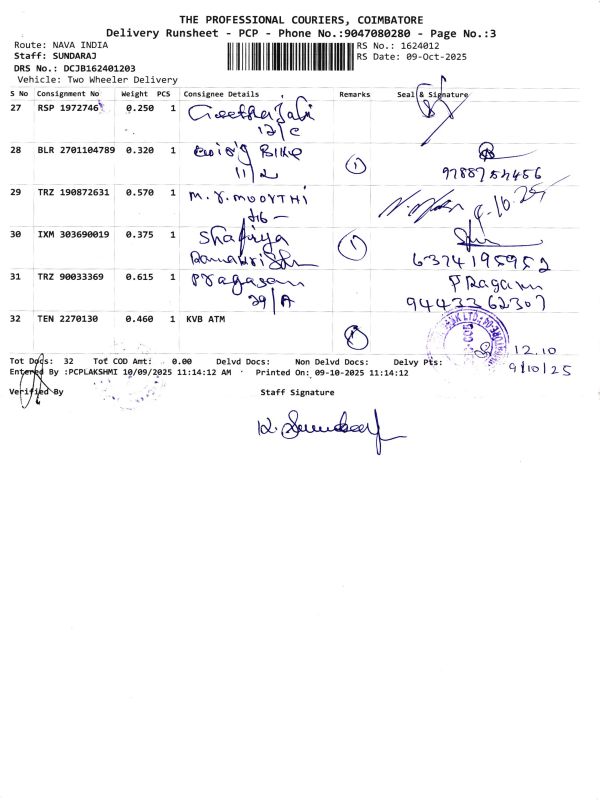 THE PROFESSIONAL COURIERS, COIMBATORE
Delivery Runsheet - PCP - Phone No.:9047080280 - Page No.:3
Route: NAVA INDIA
RS No.: 1624012
Staff: SUNDARAJ
RS Date: 09-Oct-2025
DRS No.: DCJB162401203
Vehicle: Two Wheeler Delivery
S No Consignment No Weight PCS Consignee Details Remarks Seal & Signature
27 RSP 1972746 0.250 1
12/C
28 BLR 2701104789 0.320 1
11/2 1
29 TRZ 190872631 0.570 1 M.Y.MOORTHI
9.10.25
30 IXM 303690019 0.375 1
1 6374195952
31 TRZ 90033369 0.615 1 Pragasam
29/A 9443362307
32 TEN 2270130 0.460 1 KVB ATM
12.10
9/10/25
Tot Docs: 32 Tot COD Amt: 0.00 Delvd Docs: Non Delvd Docs: Delvy Pts:
Entered By :PCPLAKSHMI 10/09/2025 11:14:12 AM Printed On: 09-10-2025 11:14:12
Verified By Staff Signature